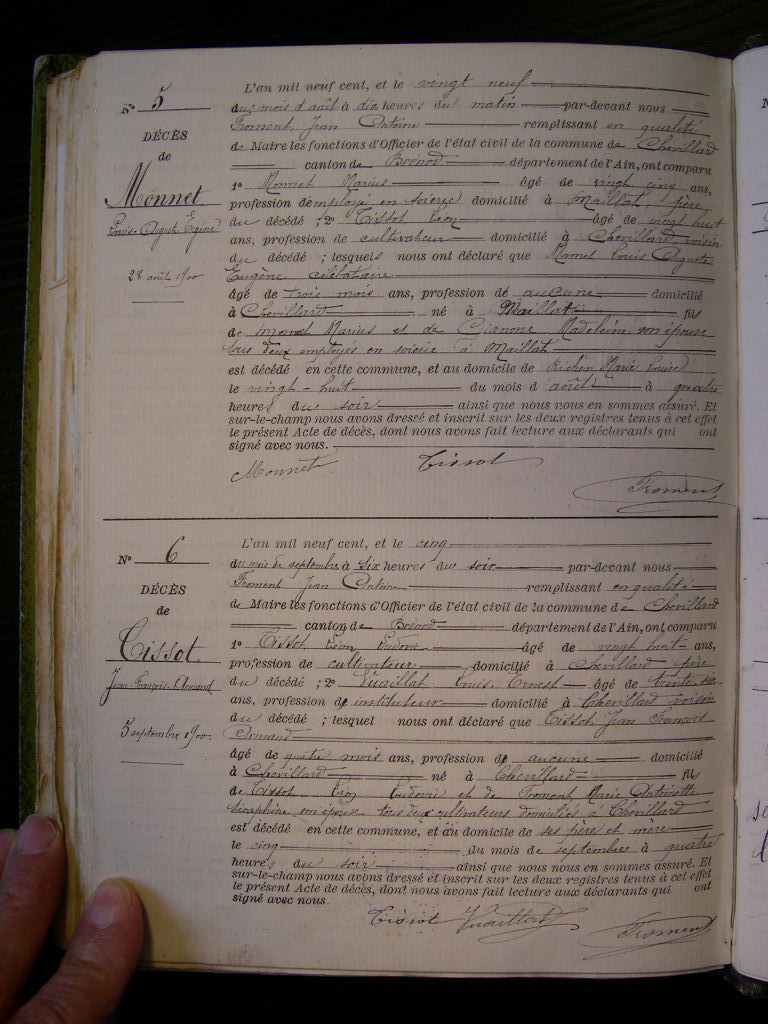 N° 5
DÉCÈS
de
Monnet
Louis Auguste Eugène
28 août 1900
L'an mil neuf cent, et le vingt neuf
du mois d'août à dix heures du matin par-devant nous
Froment, Jean Antoine remplissant en qualité
de Maire les fonctions d'Officier de l'état civil de la commune de Chevillard
canton de Brénod département de l'Ain, ont comparu
1° Monnet Marius âgé de vingt cinq ans,
profession d'employé en soierie domicilié à Maillat, père
du décédé ; 2° Tissot Léon âgé de vingt huit
ans, profession de cultivateur domicilié à Chevillard, voisin
du décédé ; lesquels nous ont déclaré que Monnet Louis Auguste
Eugène célibataire
âgé de trois mois ans, profession de aucune domicilié
à Chevillard né à Maillat fils
de Monnet Marius et de Madeleine son épouse
tous deux employés en soierie à Maillat
est décédé en cette commune, et au domicile de Richer Marie Louise
le vingt-huit du mois d'août à quatre
heures du soir ainsi que nous nous en sommes assuré. Et
sur-le-champ nous avons dressé et inscrit sur les deux registres tenus à cet effet
le présent Acte de décès, dont nous avons fait lecture aux déclarants qui ont
signé avec nous.
Monnet Tissot
Froment
N° 6
DÉCÈS
de
Tissot
Jean-François Armand
5 septembre 1900
L'an mil neuf cent, et le cinq
du mois de septembre à six heures du soir par-devant nous
Froment Jean Antoine remplissant en qualité
de Maire les fonctions d'Officier de l'état civil de la commune de Chevillard
canton de Brénod département de l'Ain, ont comparu
1° Tissot Léon Ludovic âgé de vingt huit ans,
profession de cultivateur domicilié à Chevillard père
du décédé ; 2° Vuaillat Louis Ernest âgé de trente
ans, profession de instituteur domicilié à Chevillard voisin
du décédé ; lesquel nous ont déclaré que Tissot Jean François
Armand
âgé de quatre mois ans, profession de aucune domicilié
à Chevillard né à Chevillard fils
de Tissot Léon Ludovic et de Froment Marie Antoinette
Séraphine son épouse tous deux cultivateurs domiciliés à Chevillard
est décédé en cette commune, et au domicile de ses père et mère
le cinq du mois de septembre à quatre
heures du soir ainsi que nous nous en sommes assuré. Et
sur-le-champ nous avons dressé et inscrit sur les deux registres tenus à cet effet
le présent Acte de décès, dont nous avons fait lecture aux déclarants qui ont
signé avec nous.
Tissot Vuaillat
Froment